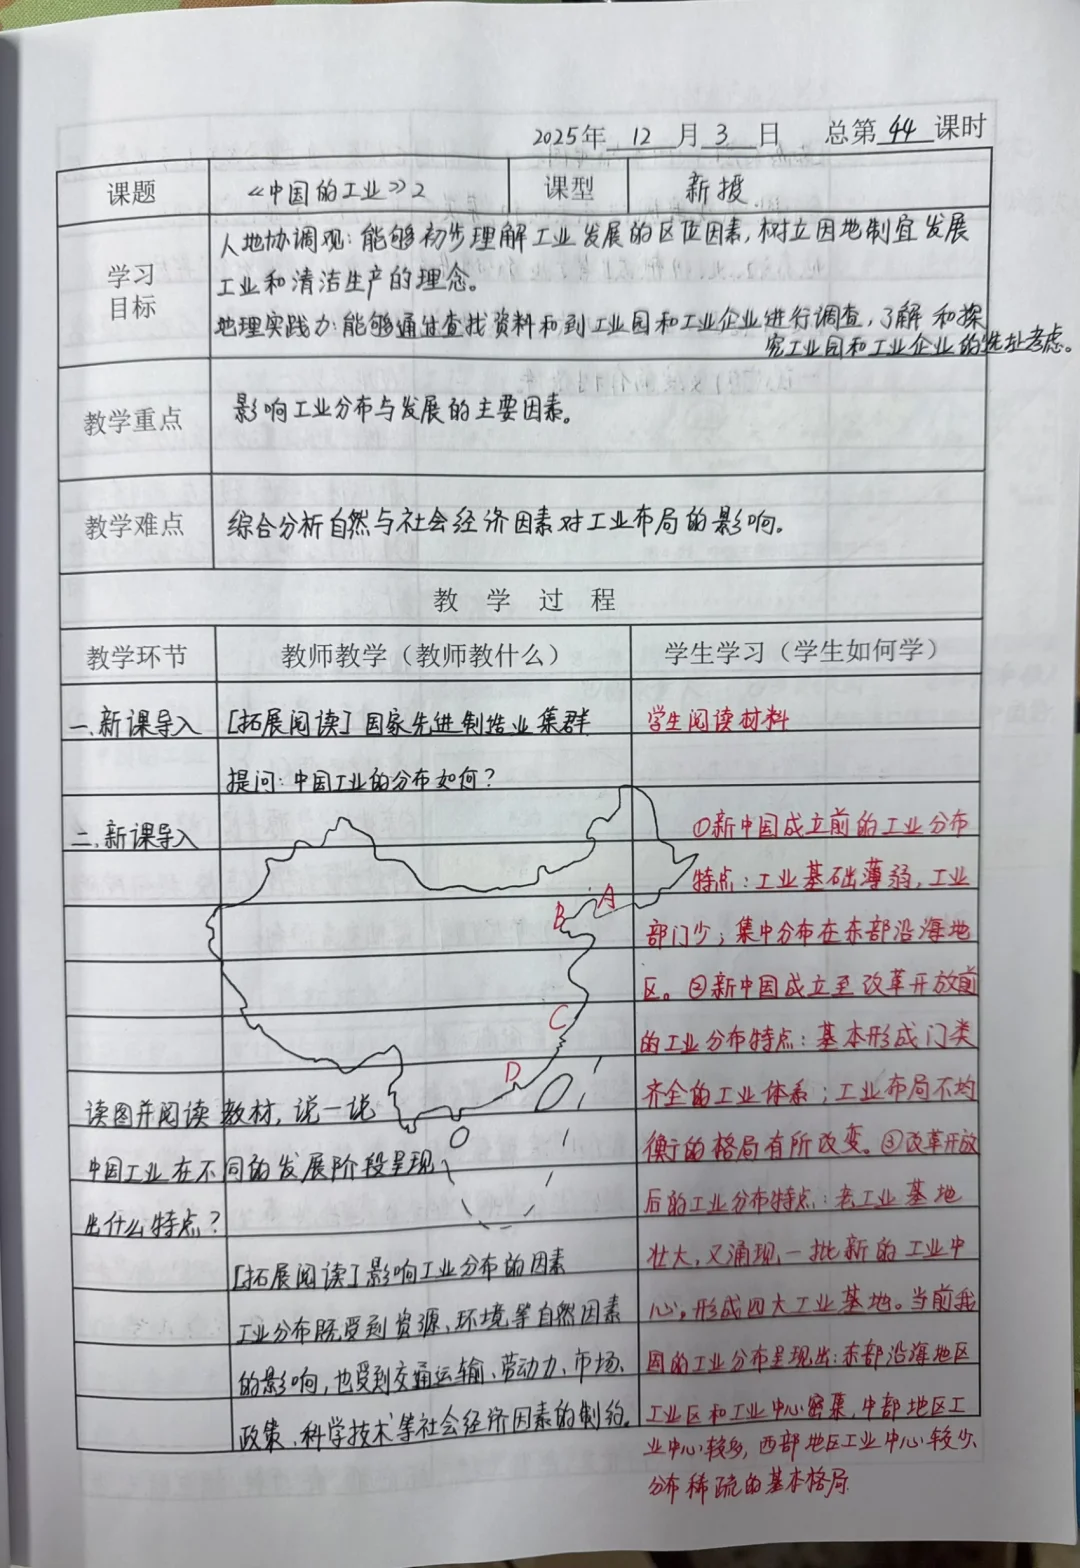 2025年 12 月 3 日 总第 44 课时
课题 《中国的工业》2 课型 新授
学习目标
人地协调观：能够初步理解工业发展的区位因素，树立因地制宜发展
工业和清洁生产的理念。
地理实践力：能够通过查找资料和到工业园和工业企业进行调查，了解和探
究工业园和工业企业的选址考虑。
教学重点 影响工业分布与发展的主要因素。
教学难点 综合分析自然与社会经济因素对工业布局的影响。
教 学 过 程
教学环节 教师教学（教师教什么） 学生学习（学生如何学）
一.新课导入 [拓展阅读] 国家先进制造业集群 学生阅读材料
提问：中国工业的分布如何？
二.新课导入
A
B
C
D
读图并阅读教材，说一说
中国工业在不同的发展阶段呈现
出什么特点？
[拓展阅读] 影响工业分布的因素
工业分布既受到资源、环境等自然因素
的影响，也受到交通运输、劳动力、市场、
政策、科学技术等社会经济因素的制约。
①新中国成立前的工业分布
特点：工业基础薄弱，工业
部门少；集中分布在东部沿海地
区。②新中国成立至改革开放前
的工业分布特点：基本形成门类
齐全的工业体系；工业布局不均
衡的格局有所改变。③改革开放
后的工业分布特点：老工业基地
壮大，又涌现一批新的工业中
心，形成四大工业基地。当前我
国的工业分布呈现出：东部沿海地区
工业区和工业中心密集，中部地区工
业中心较多，西部地区工业中心较少、
分布稀疏的基本格局